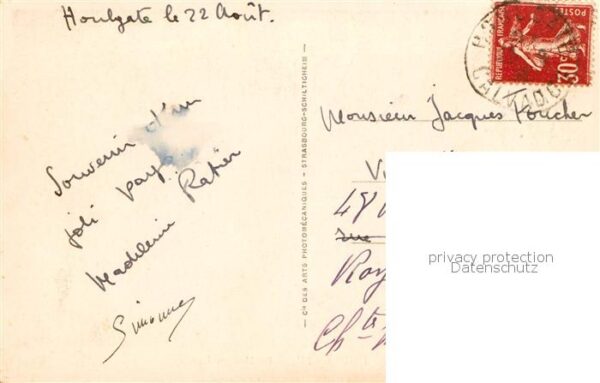 Houlgate le 22 Août.
Souvenir d'un
joli pays
Madeleine Ratier
Simonne
CIE DES ARTS PHOTOMÉCANIQUES - STRASBOURG-SCHILTIGHEIM
POSTES
RÉPUBLIQUE FRANÇAISE
30c
Monsieur Jacques Foucher
V
48
rue
Roy
Ch
privacy protection
Datenschutz